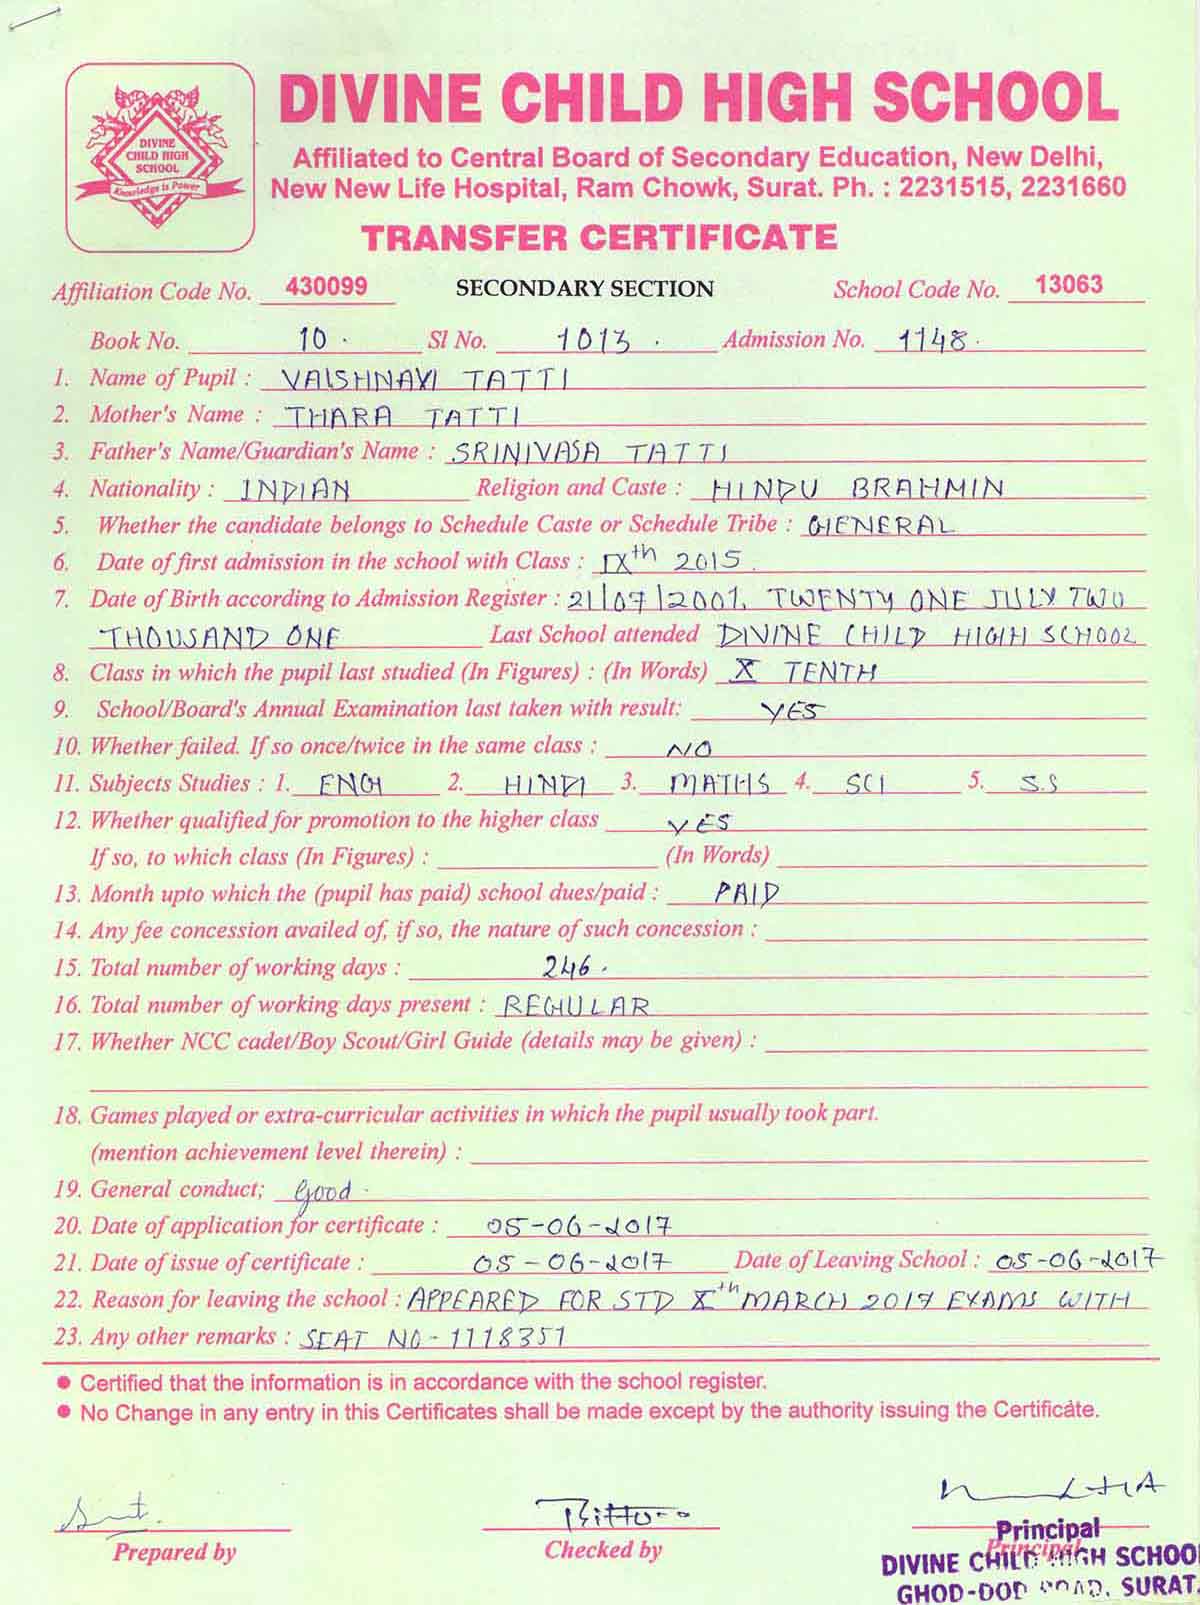 DIVINE
CHILD HIGH
SCHOOL
Knowledge is Power
DIVINE CHILD HIGH SCHOOL
Affiliated to Central Board of Secondary Education, New Delhi,
New New Life Hospital, Ram Chowk, Surat. Ph. : 2231515, 2231660
TRANSFER CERTIFICATE
Affiliation Code No. 430099 SECONDARY SECTION School Code No. 13063
Book No. 10. Sl No. 1013. Admission No. 1148.
1. Name of Pupil : VAISHNAVI TATTI
2. Mother's Name : THARA TATTI
3. Father's Name/Guardian's Name : SRINIVASA TATTI
4. Nationality : INDIAN Religion and Caste : HINDU BRAHMIN
5. Whether the candidate belongs to Schedule Caste or Schedule Tribe : GENERAL
6. Date of first admission in the school with Class : IXth 2015.
7. Date of Birth according to Admission Register : 21/07/2001, TWENTY ONE JULY TWO
THOUSAND ONE Last School attended DIVINE CHILD HIGH SCHOOL
8. Class in which the pupil last studied (In Figures) : (In Words) X TENTH
9. School/Board's Annual Examination last taken with result: YES
10. Whether failed. If so once/twice in the same class : NO
11. Subjects Studies : 1. ENG 2. HINDI 3. MATHS 4. SCI 5. S.S
12. Whether qualified for promotion to the higher class YES
If so, to which class (In Figures) : (In Words)
13. Month upto which the (pupil has paid) school dues/paid : PAID
14. Any fee concession availed of, if so, the nature of such concession :
15. Total number of working days : 246.
16. Total number of working days present : REGULAR
17. Whether NCC cadet/Boy Scout/Girl Guide (details may be given) :
18. Games played or extra-curricular activities in which the pupil usually took part.
(mention achievement level therein) :
19. General conduct; Good.
20. Date of application for certificate : 05-06-2017
21. Date of issue of certificate : 05-06-2017 Date of Leaving School : 05-06-2017
22. Reason for leaving the school : APPEARED FOR STD Xth MARCH 2017 EXAMS WITH
23. Any other remarks : SEAT NO-1118351
● Certified that the information is in accordance with the school register.
● No Change in any entry in this Certificates shall be made except by the authority issuing the Certificate.
Prepared by Checked by Principal
Principal
DIVINE CHILD HIGH SCHOOL
GHOD-DOD ROAD, SURAT.